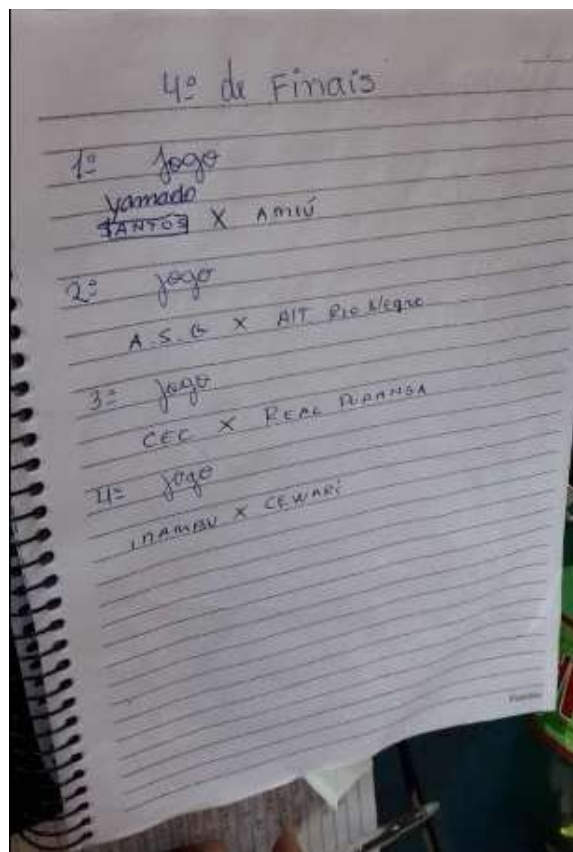 4º de Finais
1º Jogo
yamado
SANTOS X AMIÚ
2º Jogo
A.S.G X AIT Rio Negro
3º Jogo
CEC X REAL PURANGA
4º Jogo
INAMBU X CEWARI